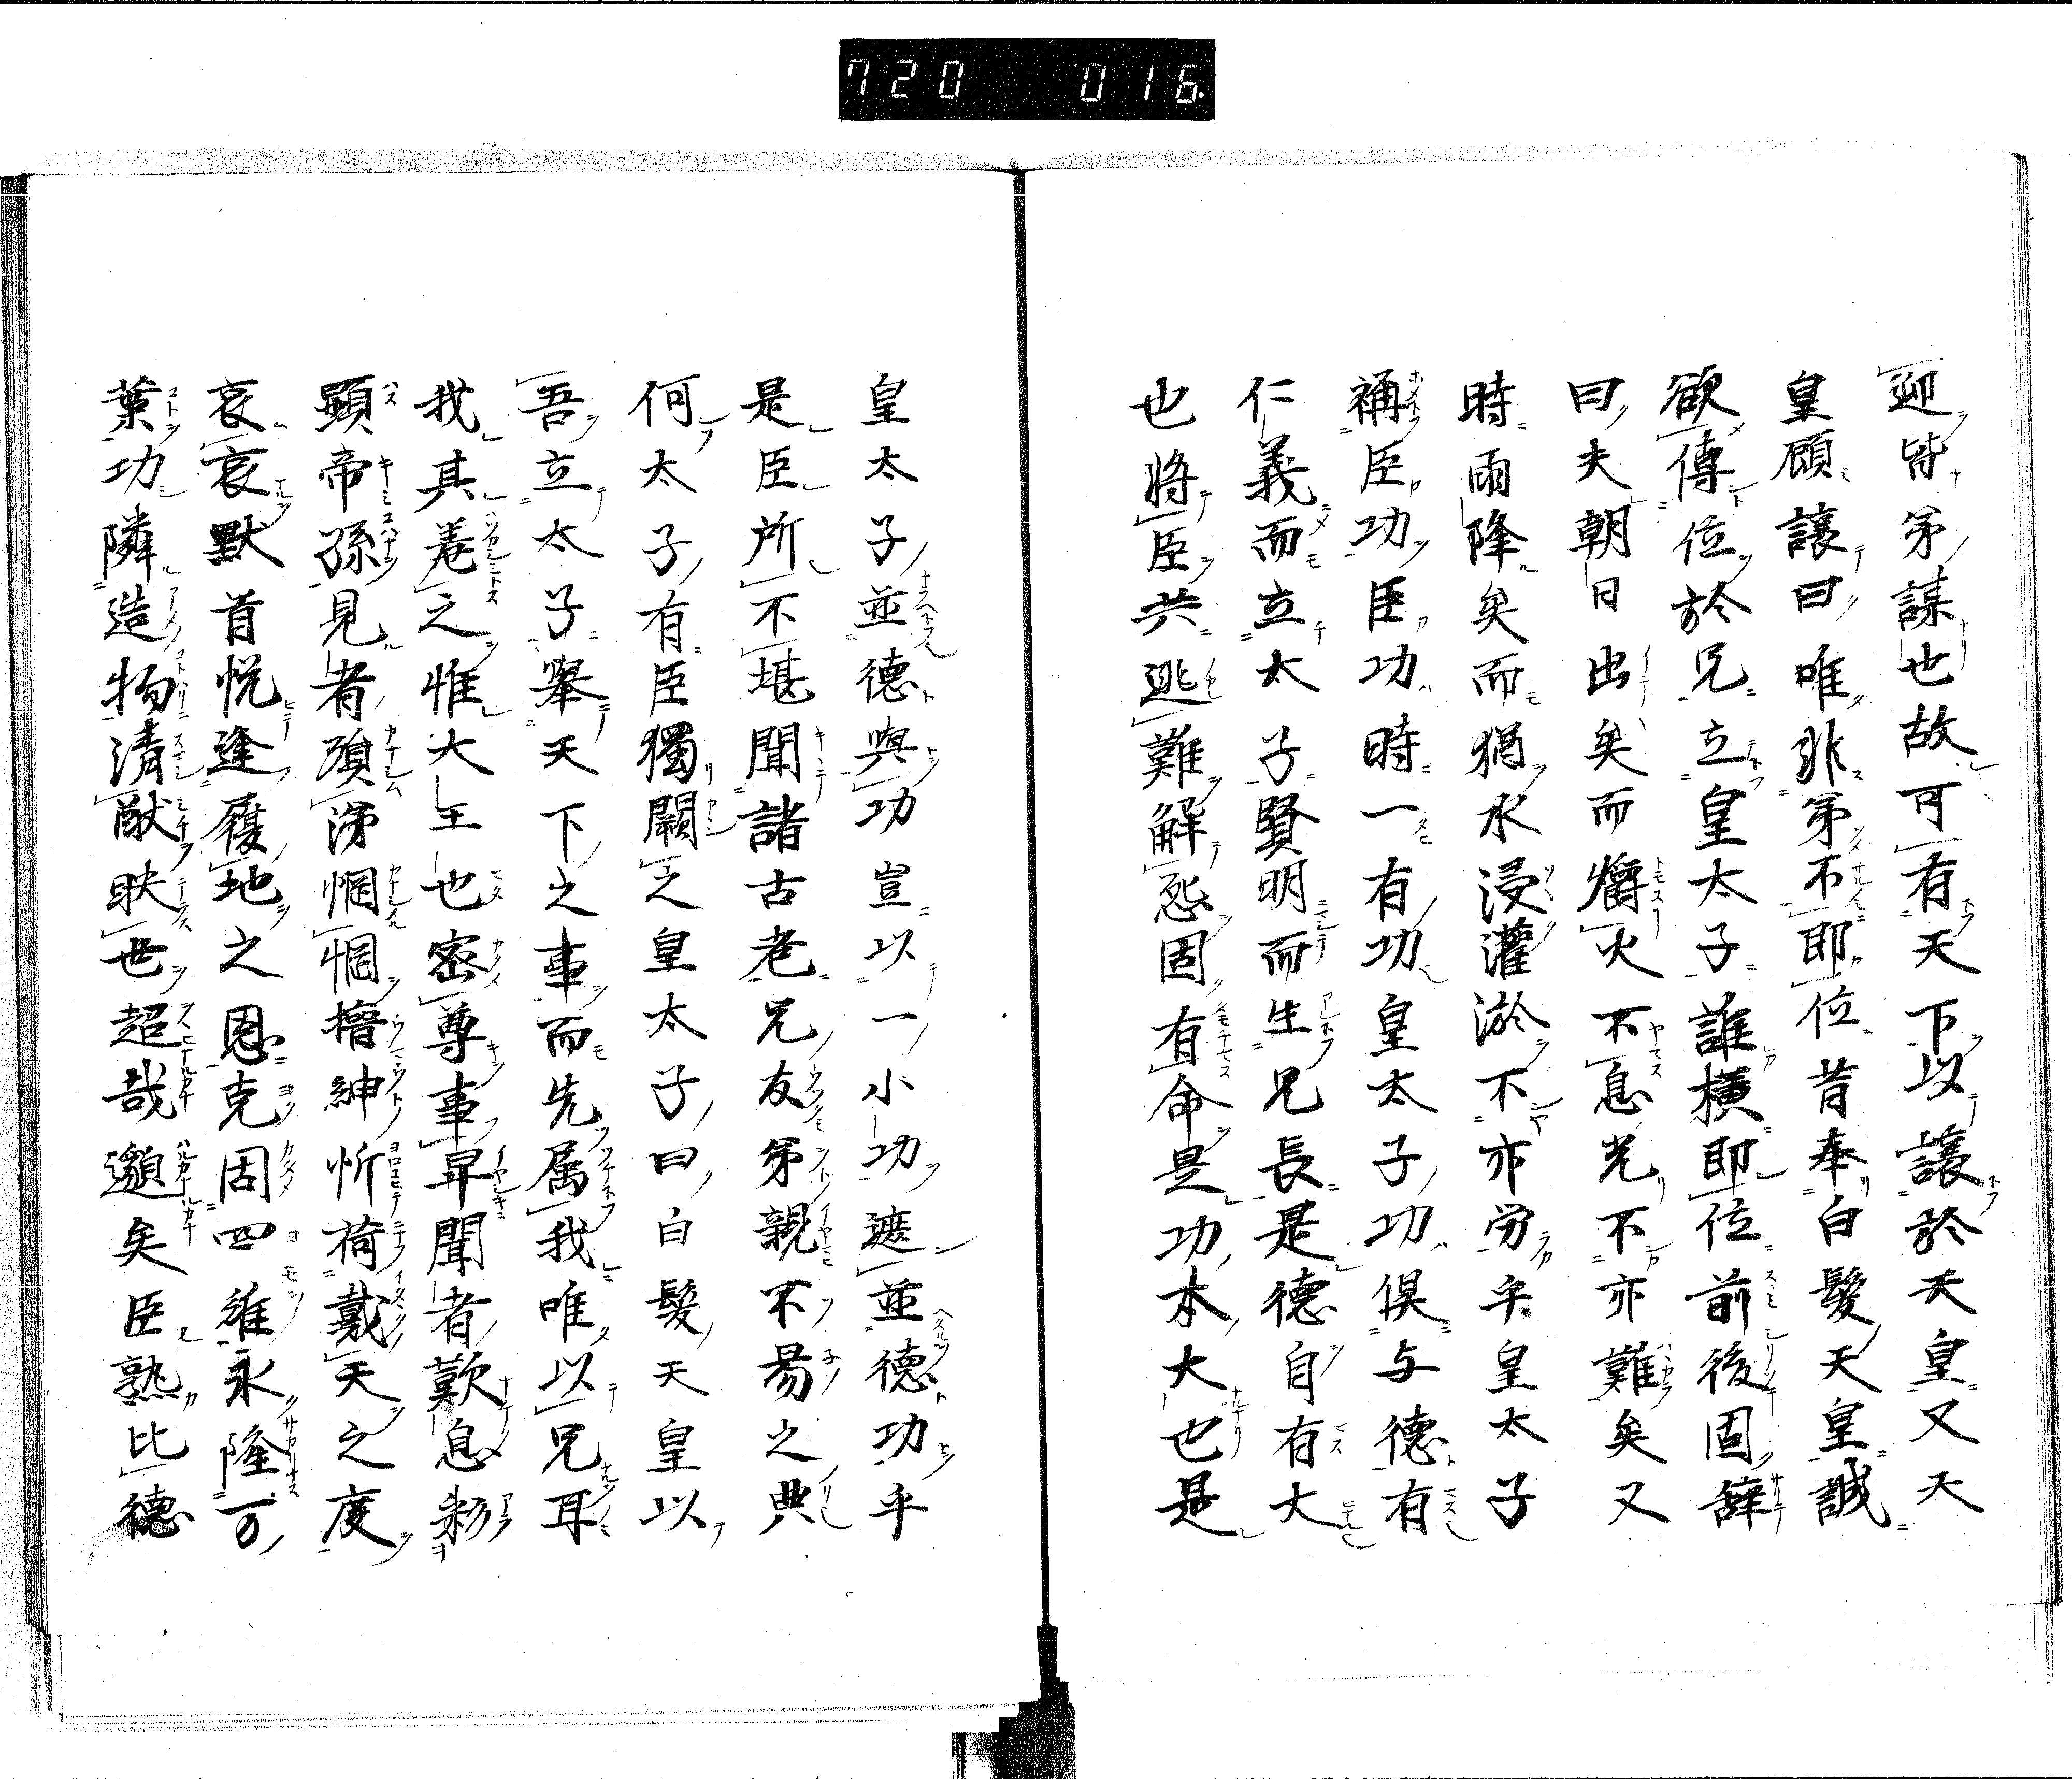 720 016
迎皆弟謀也故可有天下以譲於天皇又天
皇顧譲曰唯非弟不即位昔奉白髪天皇誠
欲傳位於兄立皇太子誰横即位前後固辞
曰夫朝日出矣而爝火不息光不亦難矣又
時雨降矣而猶水浸灌淤不亦労乎皇太子
補臣功臣功時一有功皇太子功倶与徳有
仁義而立太子賢明而生兄長是徳自有大
也将臣共逃難解死固有命是功本大也是
皇太子並徳與功豈以一小功遮並徳功乎
是臣所不堪聞諸古老兄友弟親不易之典
何太子有臣獨闕之皇太子曰白髪天皇以
吾立太子挙天下之事而先属我唯以兄耳
我其羞之惟大王也密尊事早聞者歎息
顕帝孫見者殞涕惘惘搢紳忻荷戴天之度
哀哀默首悦逢履地之恩克固四維永隆万
葉功隣造物清猷映世超哉邈矣臣熟比徳